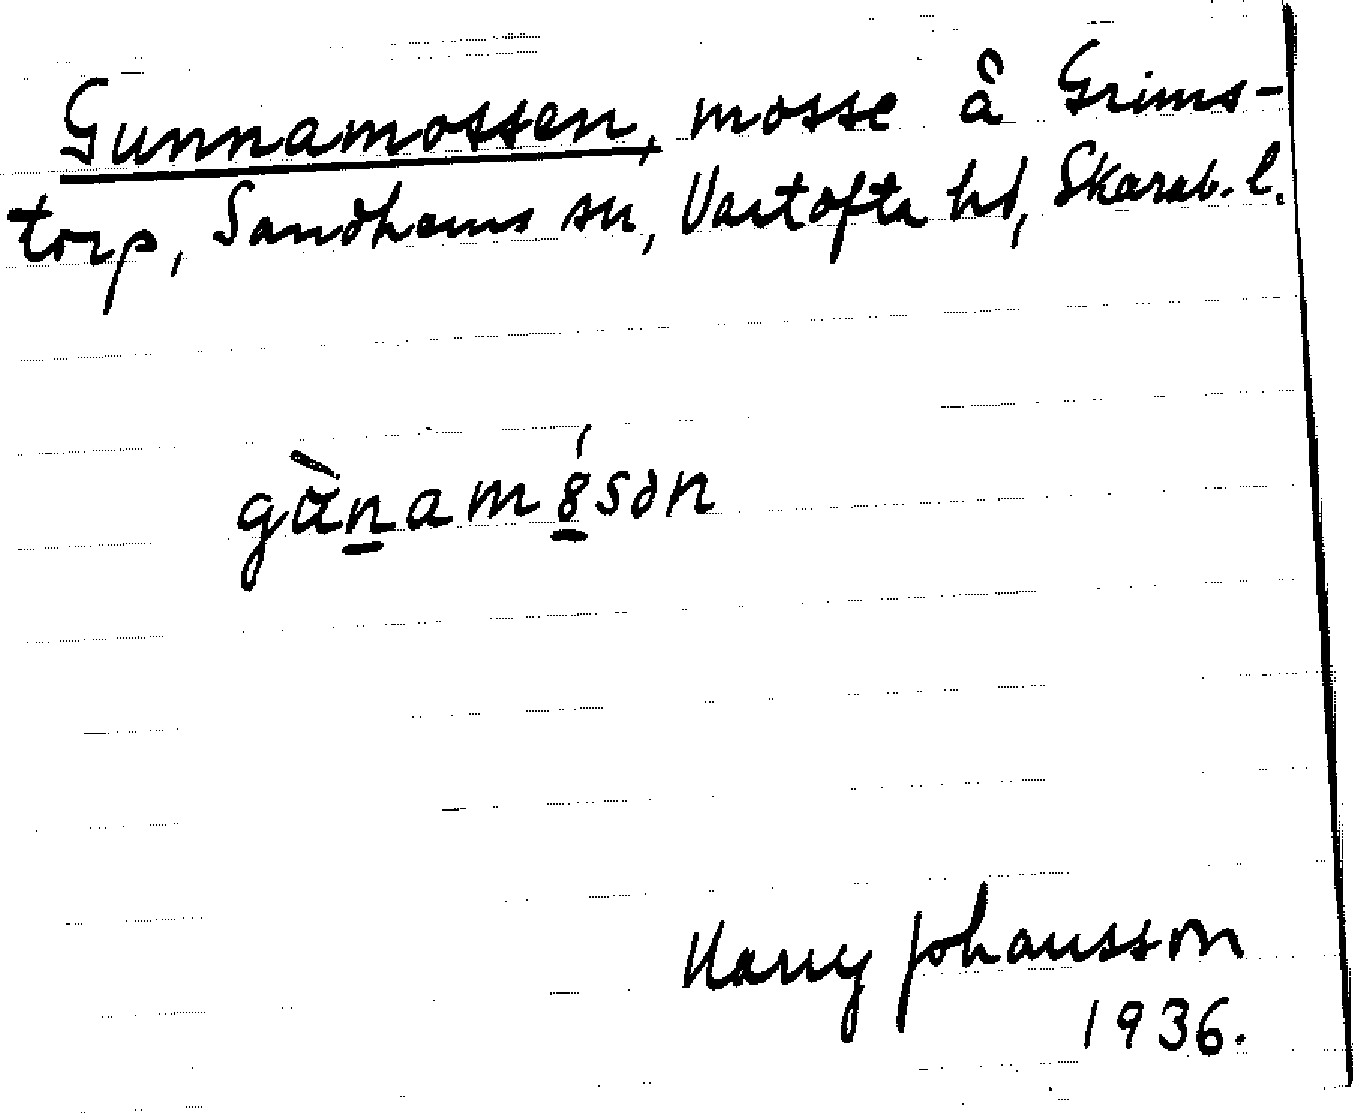 Gunnamossen, mosse å Grims-
torp, Sandhems sn, Vartofta hd, Skarab. l.
gànamósən
Harry Johansson
1936.